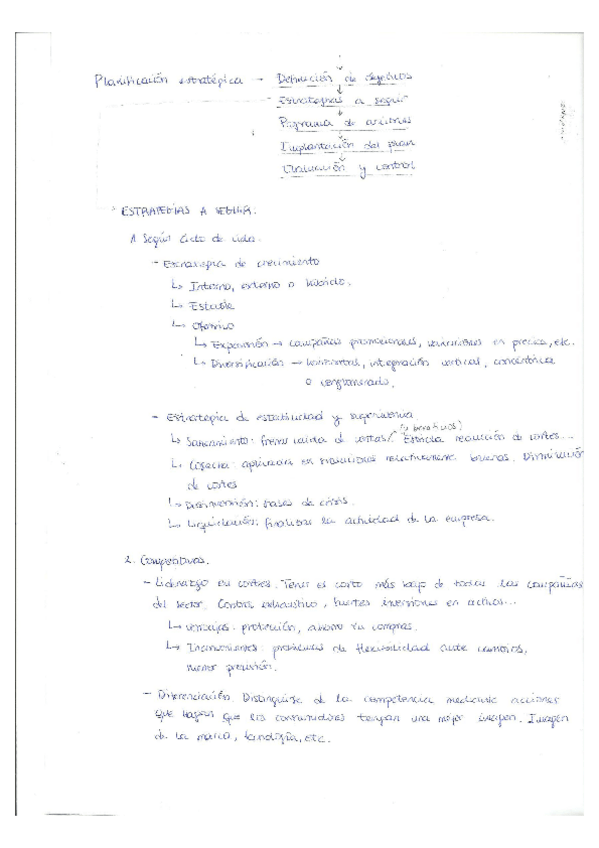 Planificación estratégica → Definición de objetivos
↓
Estrategias a seguir
↓
Programa de acciones
↓
Implantación del plan
↓
Evaluación y control
ESTRATEGIAS A SEGUIR:
1. Según Ciclo de vida.
- Estrategia de crecimiento
↳ Interno, externo o híbrido.
↳ Estable
↳ Ofensivo
↳ Expansión → campañas promocionales, en precios, etc.
↳ Diversificación → horizontal, integración vertical, concéntrica
o conglomerado.
- Estrategia de estabilidad y supervivencia
(y beneficios)
↳ Saneamiento: frenar caída de ventas/ Estricta reducción de costes...
↳ Cosecha: aplicada en situaciones relativamente buenas. Disminución
de costes
↳ Desinversión: fases de crisis.
↳ Liquidación: finalizar la actividad de la empresa.
2. Competitivas.
- Liderazgo en costes. Tener el costo más bajo de todas las compañías
del sector. Control exhaustivo, fuertes inversiones en activos...
↳ Ventajas: protección, ahorro en compras.
↳ Inconvenientes: problemas de flexibilidad ante cambios,
menor previsión.
- Diferenciación. Distinguirse de la competencia mediante acciones
que hagan que los consumidores tengan una mejor imagen. Imagen
de la marca, tecnología, etc.